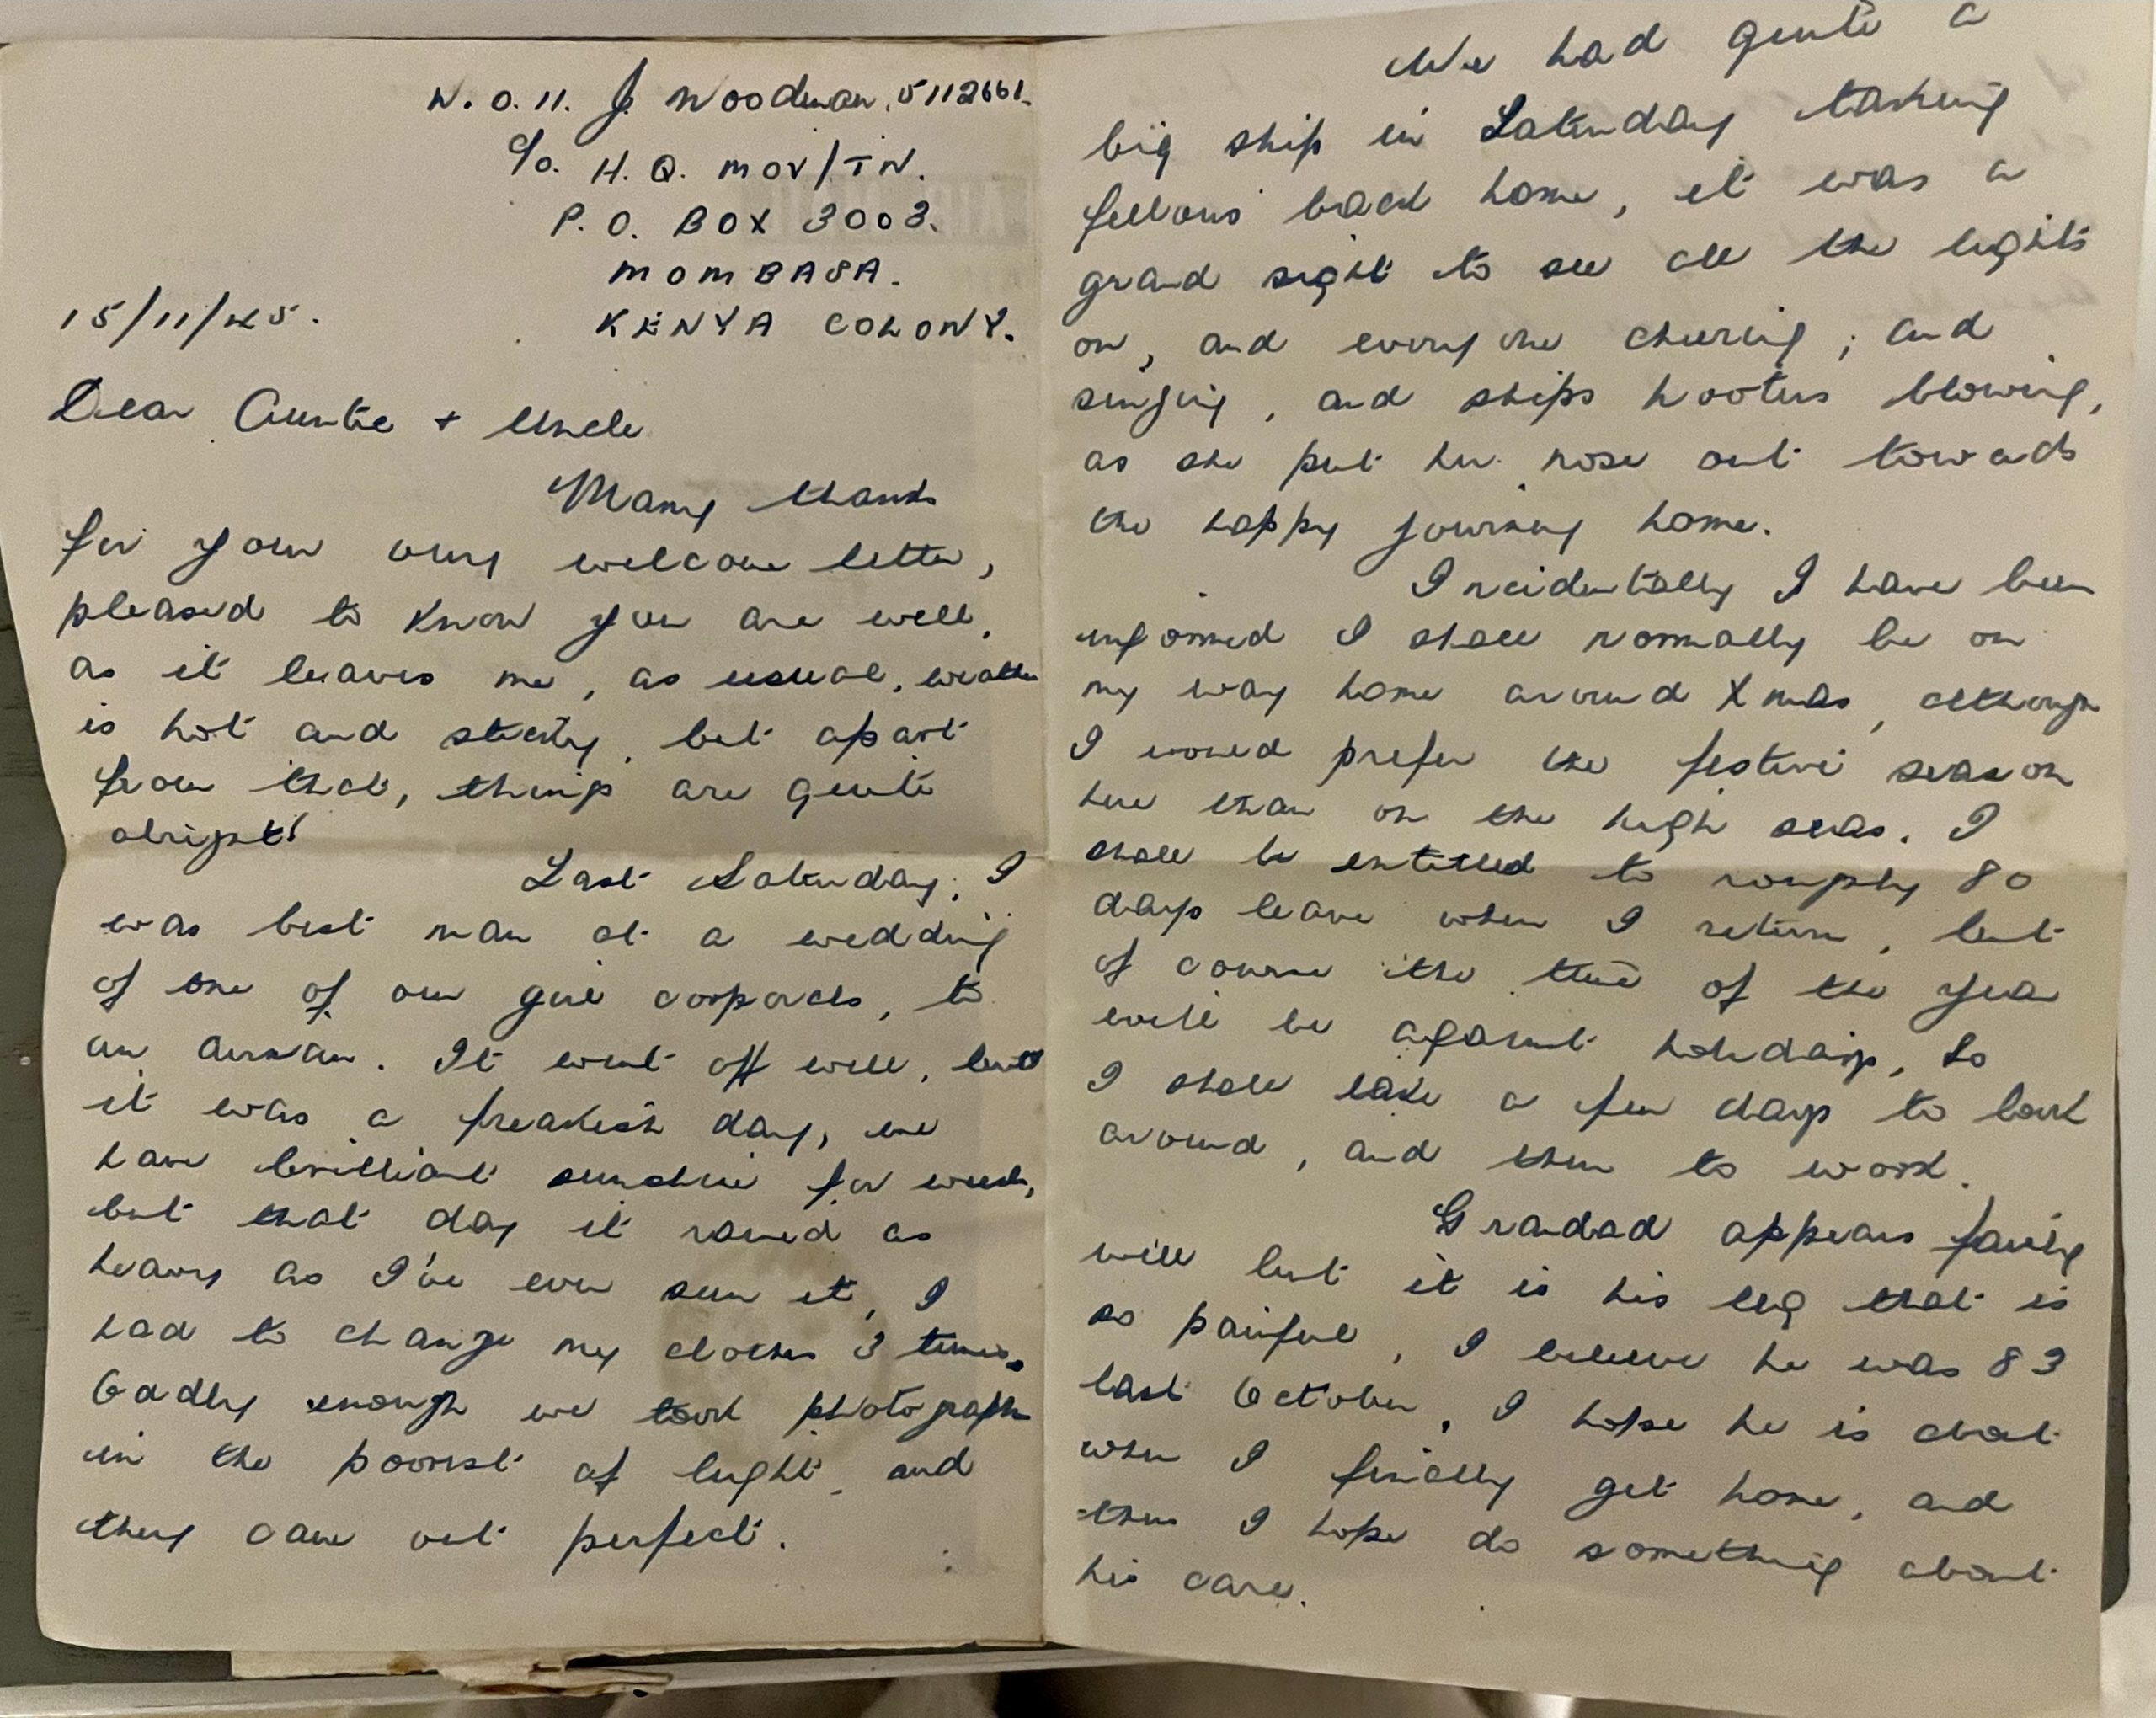 W.O.II. J. Woodman, 5112661.
c/o. H.Q. MOV/TN.
P.O. BOX 3003.
MOMBASA.
KENYA COLONY.
15/11/45.
Dear Auntie + Uncle
Many thanks
for your very welcome letter,
pleased to know you are well,
as it leaves me, as usual, weather
is hot and sticky, but apart
from that, things are quite
alright!
Last Saturday, I
was best man at a wedding
of one of our girl corporals, to
an airman. It went off well, but
it was a freakish day, we
have brilliant sunshine for weeks,
but that day it rained as
heavy as I've ever seen it, I
had to change my clothes 3 times.
Oadly enough we took photograph
in the poorest of light, and
they came out perfect.
We had quite a
big ship in Saturday taking
fellows back home, it was a
grand sight to see all the lights
on, and everyone cheering, and
singing, and ships hooters blowing,
as she put her nose out towards
the happy journey home.
Incidentally I have been
informed I shall normally be on
my way home around Xmas, although
I would prefer the festive season
here than on the high seas. I
shall be entitled to roughly 80
days leave when I return, but
of course the time of the year
will be against holidays, so
I shall take a few days to look
around, and then to work.
Grandad appears fairly
well but it is his leg that is
so painful, I believe he was 83
last October, I hope he is about
when I finally get home, and
then I hope do something about
his care.